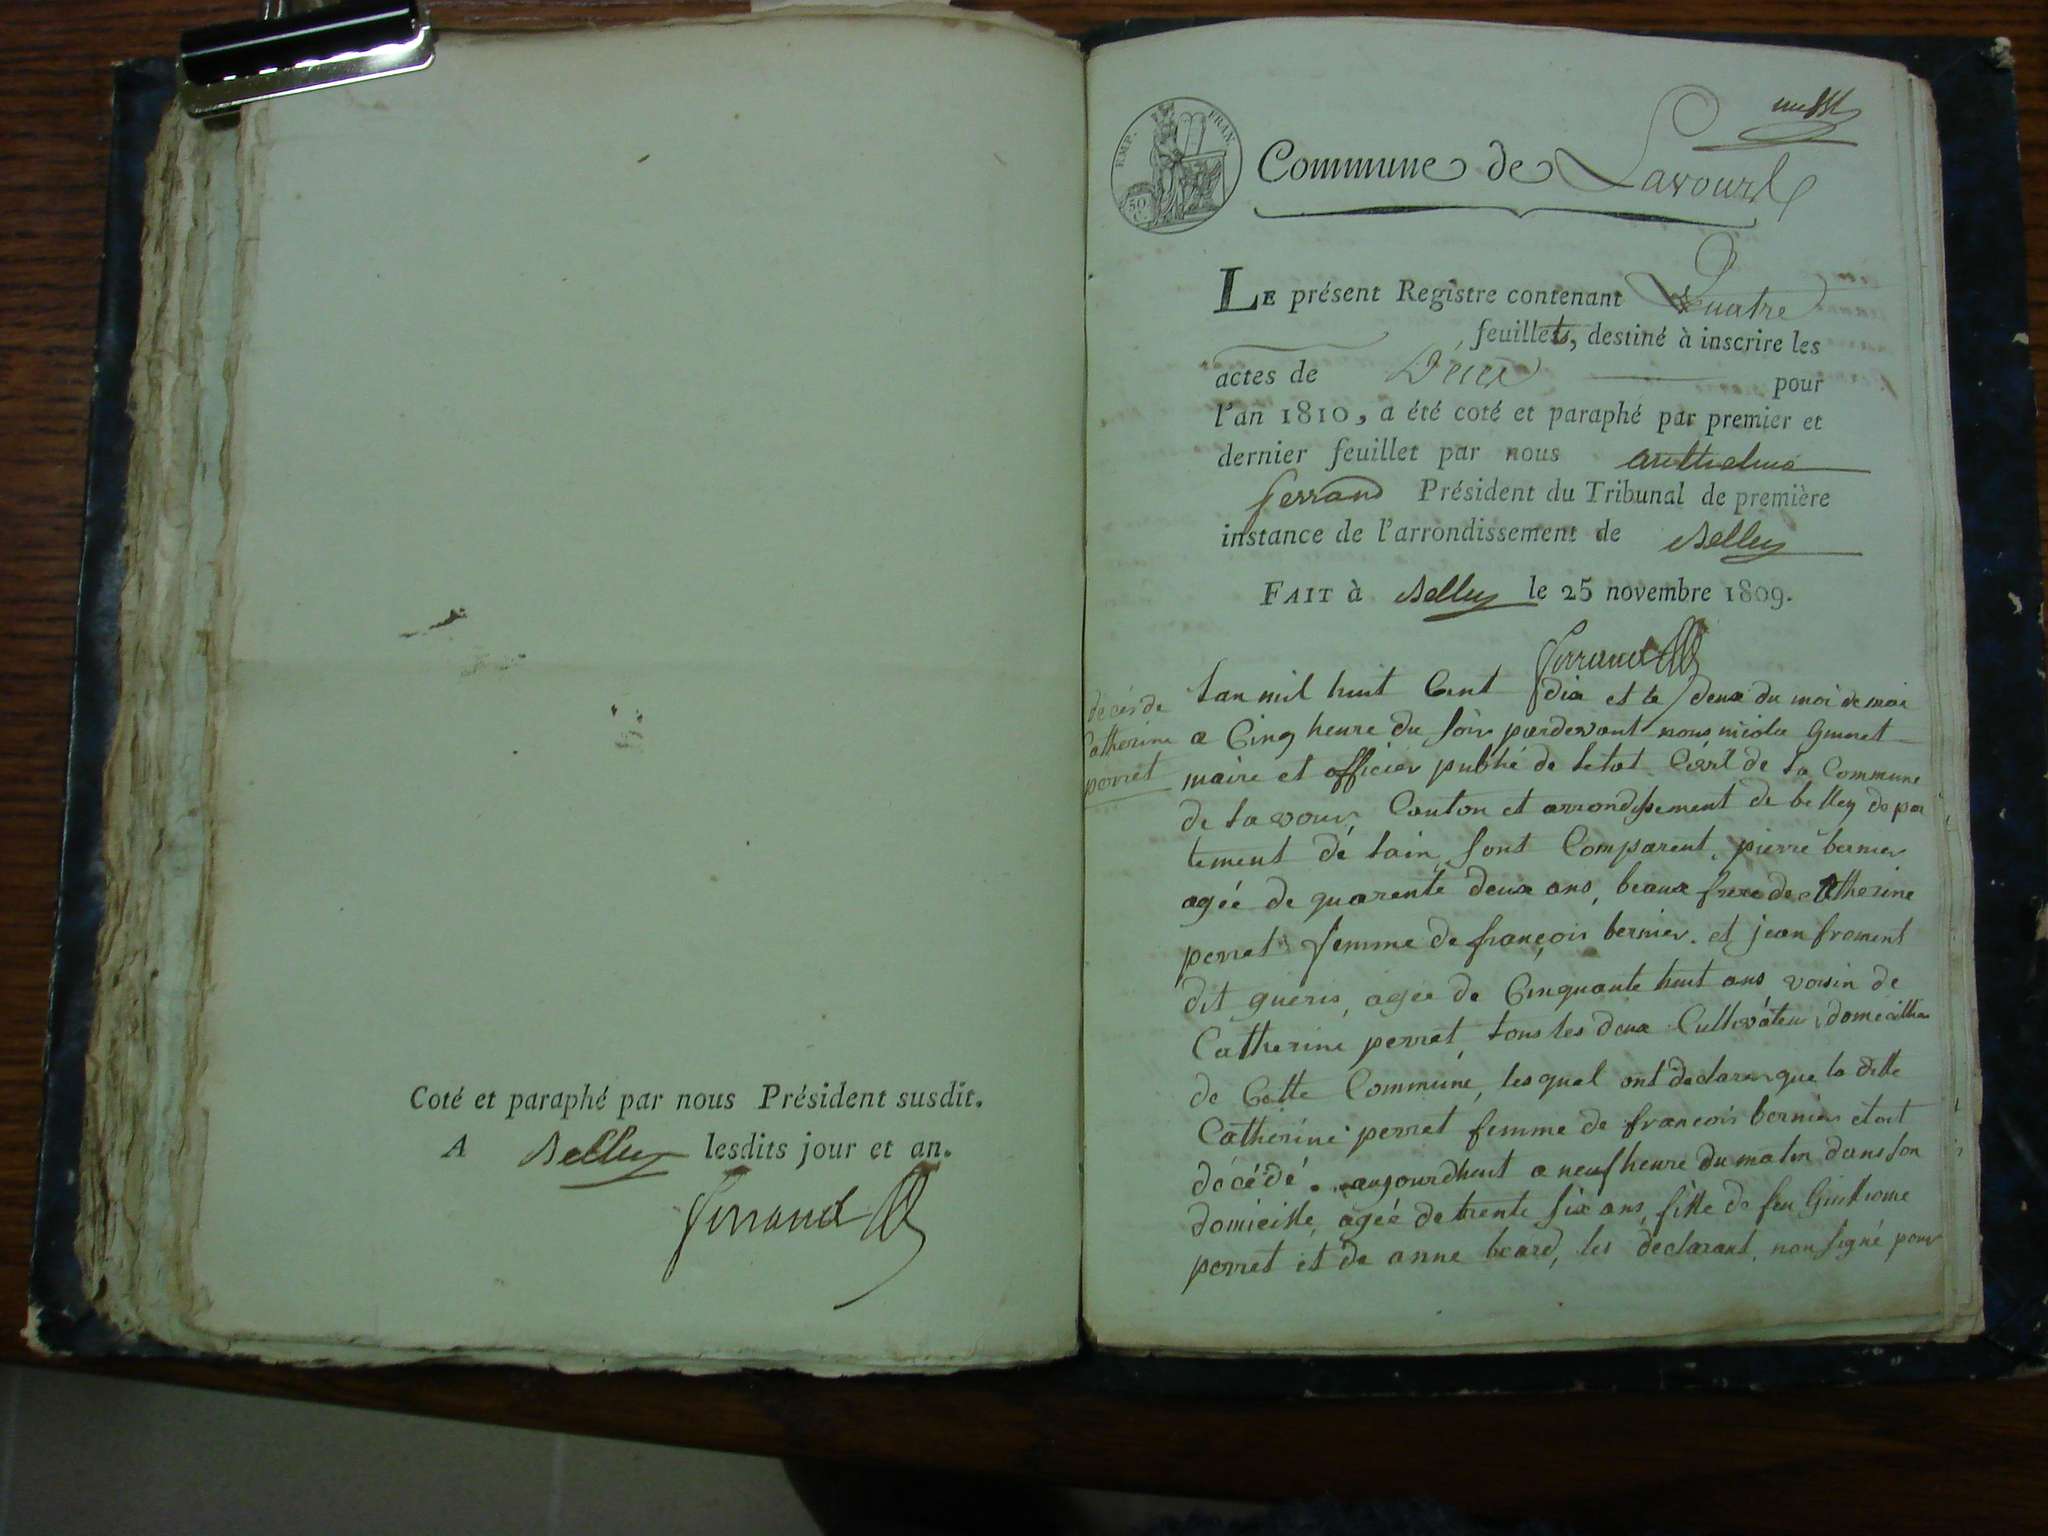 Coté et paraphé par nous Président susdit.
A Belley lesdits jour et an.
ferrand
EMP. FRAN.
50 C.
Commune de Lavour
Le présent Registre contenant Quatre
feuillets, destiné à inscrire les
actes de Décès pour
l'an 1810, a été coté et paraphé par premier et
dernier feuillet par nous anthelme
ferrand Président du Tribunal de première
instance de l'arrondissement de Belley
Fait à Belley le 25 novembre 1809.
ferrand
décès de
Catherine
perret
Lan mil huit Cent dix et le deux du moi de mai
a Cinq heure du soir pardevant nous nicola
maire et officier publié de letat Civil de la Commune
de lavour, Canton et arrondissement de belley depar
tement de lain, sont Comparent, pierre bernier
agée de quarente deux ans, beaux frere de Catherine
perret femme de françois bernier. et jean froment
dit gueris, agée de Cinquante huit ans voisin de
Catherine perret, tous les deux Cultivateur, domicillier
de Cette Commune, lesquel ont declarer que la ditte
Catherine perret femme de francois bernier etoit
décédé aujourdhuit a neuf heure du matin dans son
domicille, agée de trente six ans, fille de feu Guilliome
perret et de anne beard, les declarant, non signé pour